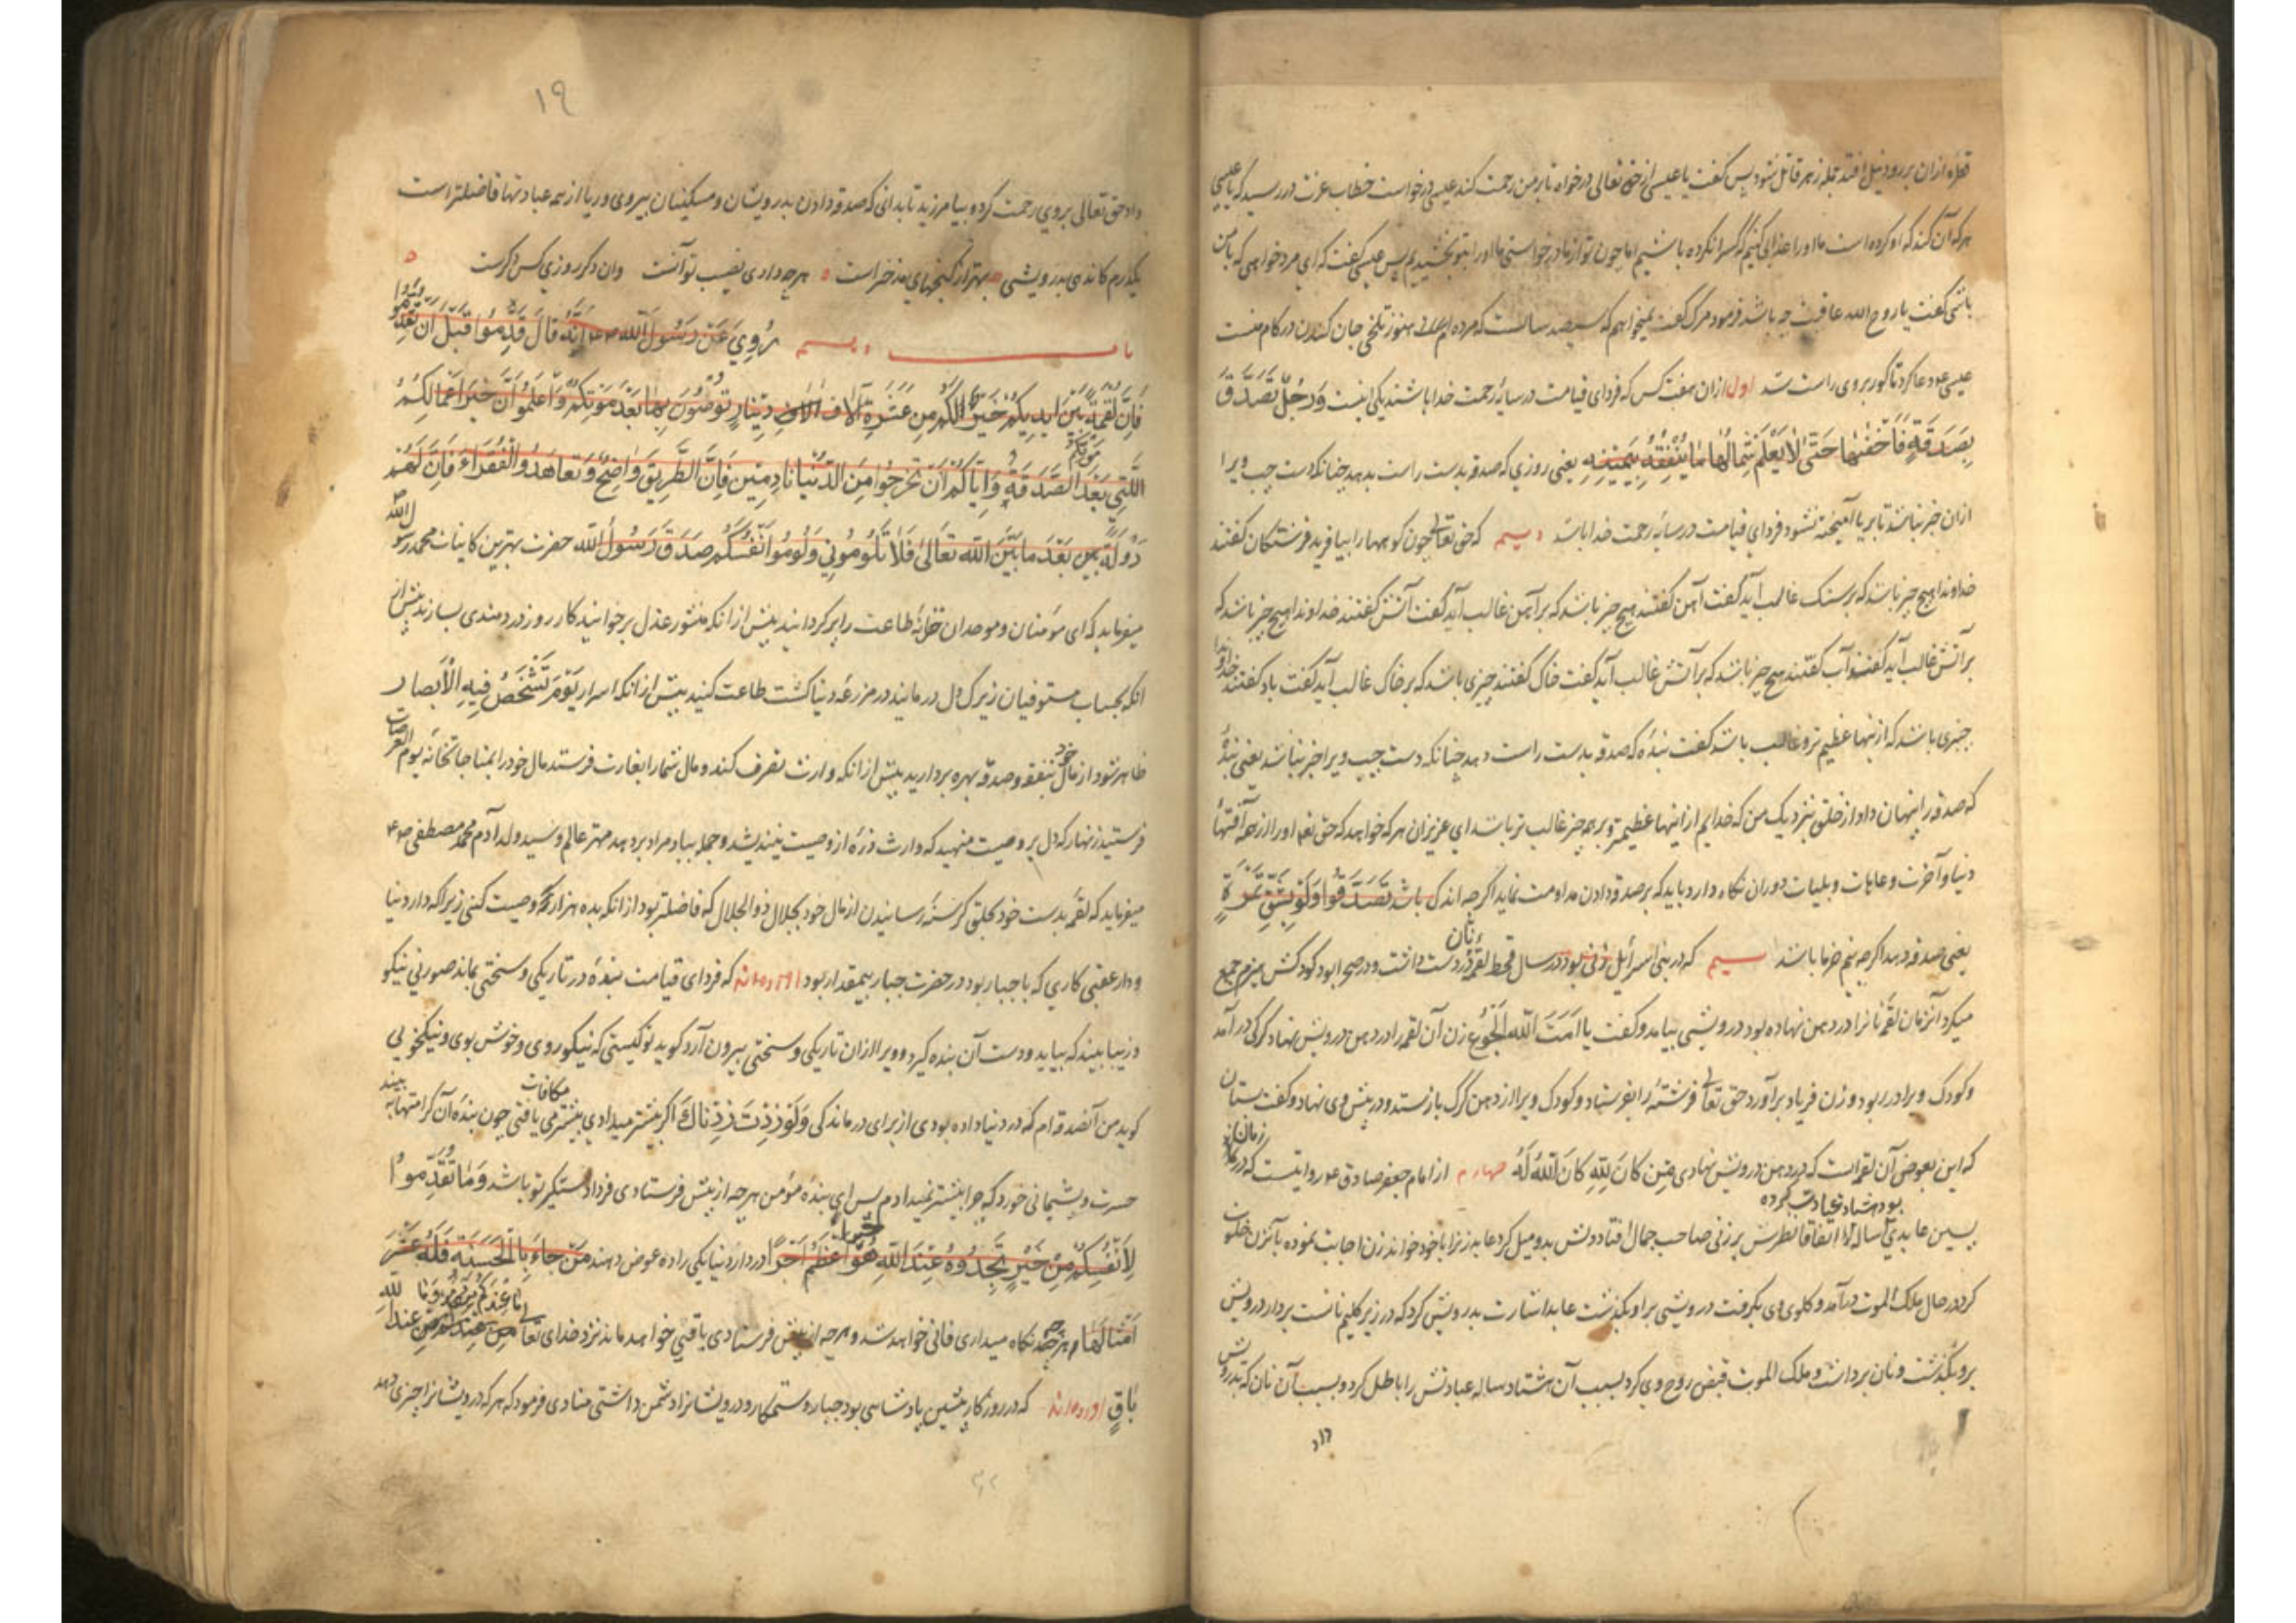 قطره ازان بررود نیل افتد جمله زهر قاتل شود پس گفت یا عیسی از حق تعالی درخواه تا بر من رحمت کند عیسی درخواست خطاب عزت دررسید که یا عیسی
هر که آن کند که او کرده است ما او را عذابی کنیم که کس را نکرده باشیم اما چون تو از ما درخواستی ما او را بتو بخشیدیم پس عیسی گفت که ای مرد خواهی که با من
باشی گفت یا روح الله عاقبت چه باشد فرمود مرگ گفت نمیخواهم که سیصد سالست که مرده ام هنوز تلخی جان کندن در کام منست
عیسی ع دعا کرد تا گور بروی راست شد اول ازان هفت کس که فردای قیامت در سایه رحمت خدا باشند یکی اینست وَرَجُلٌ تَصَدَّقَ
بِصَدَقَةٍ فَأَخْفٰىهَا حَتّٰى لَا یَعْلَمَ شِمَالُهَا مَا یُنْفِقُهُ بِیَمِینِهِ یعنی روزی که صدقه بدست راست بدهد چنانکه دست چپ ویرا
ازان خبر نباشد تا بریا آمیخته نشود فردای قیامت در سایه رحمت خدا باشد دویم که حق تعالی چون کوهها را بیافرید فرشتگان گفتند
خداوندا هیچ چیز باشد که بر سنک غالب آید گفت آهن گفتند هیچ چیز باشد که بر آهن غالب آید گفت آتش گفتند خداوندا هیچ چیز باشد که
بر آتش غالب آید گفت آب گفتند هیچ چیز باشد که بر آتش غالب آید گفت خاک گفتند چیزی باشد که بر خاک غالب آید گفت باد گفتند خداوندا
چیزی باشد که ازینها عظیم تر و غالب باشد گفت بنده که صدقه بدست راست دهد چنانکه دست چپ ویرا خبر نباشد یعنی بندهٔ
که صدقه را پنهان داد از خلق بنزدیک من که خدایم ازاینها عظیمتر و بر همه چیز غالب تر باشد ای عزیزان هر که خواهد که حق تعا او را از همه آفتهاء
دنیا و آخرت و عاهات و بلیات دوران نگاه دارد باید که بر صدقه دادن مداومت نماید اگر چه اندک باشد تَصَدَّقُوا وَلَوْ بِشِقِّ تَمْرَةٍ
یعنی صدقه دهید اگر چه نیم خرما باشد سیم که در بنی اسرائیل زنی بود در سال قحط لقمه نان در دست داشت و در صحرا بود کودکش هیزم جمع
میکرد آنزمان لقمه نانرا در دهن نهاده بود درویشی بیامد و گفت یا اَمَتَ اللّٰهِ اَلْجُوع زن آن لقمه را در دهن درویش نهاد گرگی درآمد
و کودک ویرا در ربود و زن فریاد برآورد حق تعالی فرشتهٔ را بفرستاد و کودک ویرا از دهن گرگ بازستد و در پیش وی نهاد و گفت بستان
که این بعوض آن لقمه است که در دهن درویش نهادی مَنْ كَانَ لِلّٰهِ كَانَ اللّٰهُ لَهُ چهارم از امام جعفر صادق ع روایتست که در زمان
پیشین عابدی بود هشتاد ساله عبادت کرده اتفاقا نظرش بر زنی صاحب جمال افتاد دلش بدو میل کرد عابد زنرا با خود خواند زن اجابت نموده با آنزن خلوت
کرد در حال ملک الموت درآمد و گلوی وی بگرفت درویشی بر او بگذشت عابد اشارت بدرویش کرد که در زیر گلیم نانست بردار درویش
برو بگذشت و نان برداشت و ملک الموت قبض روح وی کرد بسبب آن هشتاد ساله عبادتش را باطل کرد و بسبب آن نان که بدرویش
داد
۱۹
داد حق تعالی بروی رحمت کرد و بیامرزید تا بدانی که صدقه دادن بدرویشان و مسکینان بیروی و ریا از همه عبادتها فاضلتر است
یکدرم کان دهی بدرویشی بهتر از گنجهای مدخر است هر چه دادی نصیب تو آنست وان دگر روزی کس دگرست
باب دویم رُوِیَ عَنْ رَسُولِ اللّٰهِ ص اَنَّهُ قَالَ قَدِّمُوا قَبْلَ اَنْ
فَاِنَّ لُقْمَةً بَیْنَ اَیْدِیكُمْ خَیْرٌ لَكُمْ مِنْ عَشَرَةِ آلَافِ دِینَارٍ تُوصُونَ بِهَا بَعْدَ مَوْتِكُمْ وَاعْلَمُوا اَنَّ خَیْرَ اَعْمَالِكُمْ
الَّتِی بَعْدَ مَوْتِكُمْ الصَّدَقَةُ وَاِیَّاكُمْ اَنْ تَخْرُجُوا مِنَ الدُّنْیَا نَادِمِینَ فَاِنَّ الطَّرِیقَ وَاضِحٌ وَتَعَاهَدُوا الْفُقَرَاءَ فَاِنَّ لَهُمْ
دَوْلَةً بَعْدَ مَا بَیَّنَ اللّٰهُ تَعَالٰى فَلَا تَلُومُونِی وَلُومُوا اَنْفُسَكُمْ صَدَقَ رَسُولُ اللّٰهِ حضرت بهترین کاینات محمد رسول الله ص
میفرماید که ای مؤمنان و موحدان خزانهٔ طاعت را پر گردانید پیش از انکه منشور عذل برخوانید کار روز دردمندی بسازید پیش از
انکه بحساب مستوفیان زیرک دل درمانید در مزرعهٔ دنیا کشت طاعت کنید پیش از انکه اسرار یَوْمَ تَشْخَصُ فِیهِ الْاَبْصَارُ
ظاهر شود از مال خود بنفقه و صدقه بهره بردارید پیش از انکه وارث تصرف کند و مال شما را بغارت فرستد مال خود را بمناجاتخانه یوم العرصات
فرستید زنهار که دل بر وصیت منهید که وارث ذرهٔ از وصیت نیندیشد و جمله بباد مراد بردهد مهتر عالم و سید ولد آدم محمد مصطفی ص
میفرماید که لقمه بدست خود بحلق گرسنه رسانیدن از مال خود بجلال ذوالجلال که فاضلتر بود از انکه بده هزار وصیت کنی زیرا که دار دنیا
و دار عقبی کاری که با جبار بود در حضرت جبار بیمقدار بود آورده اند که فردای قیامت بنده در تاریکی و سختی بماند صورتی نیکو
و زیبا بیند که بیاید و دست آن بنده گیرد و ویرا ازان تاریکی و سختی بیرون آرد گوید تو کیستی که نیکو روی و خوش بوی و نیکخویی
گوید من آنصدقه ام که در دنیا داده بودی از برای درماندگی وَلَوْ زِدْتَ زِدْنَاكَ اگر بیشتر میدادی بیشتر مکافات می یافتی چون بنده آن کرامتها بیند
حسرت و پشیمانی خورد که چرا بیشتر نمیدادم پس ای بنده مؤمن هر چه از پیش فرستادی فردا دستگیر تو باشد وَمَا تُقَدِّمُوا
لِاَنْفُسِكُمْ مِنْ خَیْرٍ تَجِدُوهُ عِنْدَ اللّٰهِ هُوَ خَیْرًا وَاَعْظَمَ اَجْرًا در دار دنیا یکی را ده عوض دهند مَنْ جَاءَ بِالْحَسَنَةِ فَلَهُ عَشْرُ
اَمْثَالِهَا و هر چه نگاه میداری فانی خواهد شد و هر چه از پیش فرستادی باقی خواهد ماند نزد خدای تعالی مَا عِنْدَكُمْ یَنْفَدُ وَمَا عِنْدَ اللّٰهِ
بَاقٍ آورده اند که در روزگار پیشین پادشاهی بود جبار و ستمکار و درویشانرا دشمن داشتی منادی فرمود که هر که درویشانرا چیزی دهد